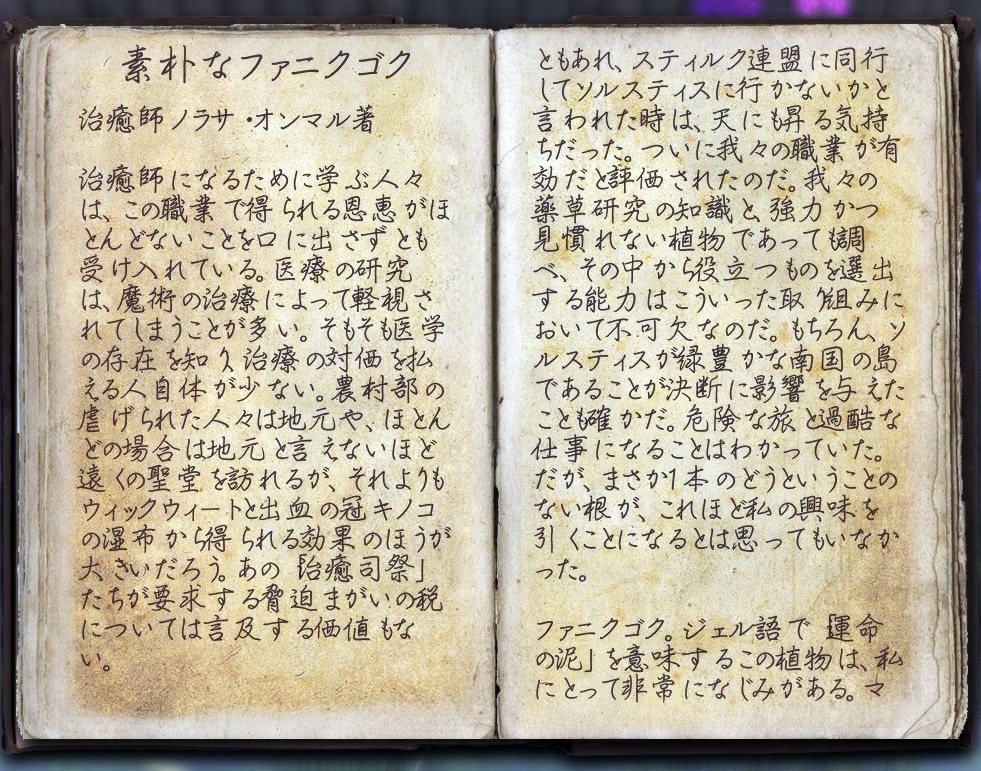 素朴なファニクゴク
治癒師ノラサ・オンマル著
治癒師になるために学ぶ人々
は、この職業で得られる恩恵がほ
とんどないことを口に出さずとも
受け入れている。医療の研究
は、魔術の治療によって軽視さ
れてしまうことが多い。そもそも医学
の存在を知り、治療の対価を払
える人自体が少ない。農村部の
虐げられた人々は地元や、ほとん
どの場合は地元と言えないほど
遠くの聖堂を訪れるが、それよりも
ウィックウィートと出血の冠キノコ
の湿布から得られる効果のほうが
大きいだろう。あの「治癒司祭」
たちが要求する脅迫まがいの税
については言及する価値もな
い。
ともあれ、スティルク連盟に同行
してソルスティスに行かないかと
言われた時は、天にも昇る気持
ちだった。ついに我々の職業が有
効だと評価されたのだ。我々の
薬草研究の知識と、強力かつ
見慣れない植物であっても調
べ、その中から役立つものを選出
する能力はこういった取り組みに
おいて不可欠なのだ。もちろん、ソ
ルスティスが緑豊かな南国の島
であることが決断に影響を与えた
ことも確かだ。危険な旅と過酷な
仕事になることはわかっていた。
だが、まさか1本のどうということの
ない根が、これほど私の興味を
引くことになるとは思ってもいなか
った。
ファニクゴク。ジェル語で「運命
の泥」を意味するこの植物は、私
にとって非常になじみがある。マ